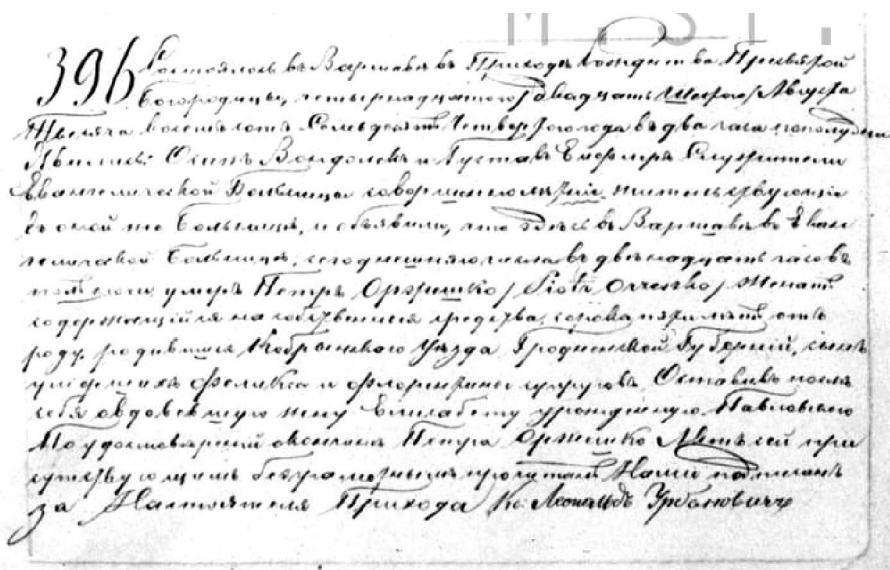 396
Состоялось въ Варшавѣ въ Приходѣ Рождества Пресвятой
Богородицы, четырнадцатого /двадцать шестого/ Августа
тысяча восемьсотъ семьдесятъ четвертого года въ два часа пополудни
Явились: Осипъ и Густавъ служители
Евангелической Больницы совершеннолѣтніе жительствующіе
въ оной же Больницѣ, и объявили, что здѣсь въ Варшавѣ въ Еван
гелической Больницѣ, сегодняшняго числа въ двѣнадцать часовъ
умеръ Петръ Оржешко /Piotr Orzeszko/ женатый
содержащійся на собственныя средства, сорока пяти лѣтъ отъ
роду, родившійся Кобрынскаго Уѣзда Гродненской Губерніи, сынъ
Феликса и Флорентины супруговъ, Оставивъ послѣ
себя овдовѣвшую жену Елисабету урожденную Павловскую
По удостовѣреніи о кончинѣ Петра Оржешко Актъ сей при
сутствующимъ безграмотнымъ прочитанъ Нами подписанъ
За Настоятеля Прихода Кс. Леопольдъ Урбановичъ